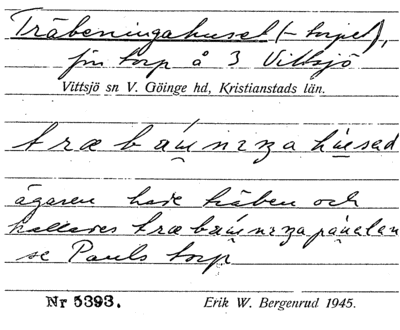 Träbeningahuset (– torpet),
fm torp å 3 Vittsjö
Vittsjö sn V. Göinge hd, Kristianstads län.
ägaren hade träben och
kallades
se Pauls torp
Nr 5393. Erik W. Bergenrud 1945.